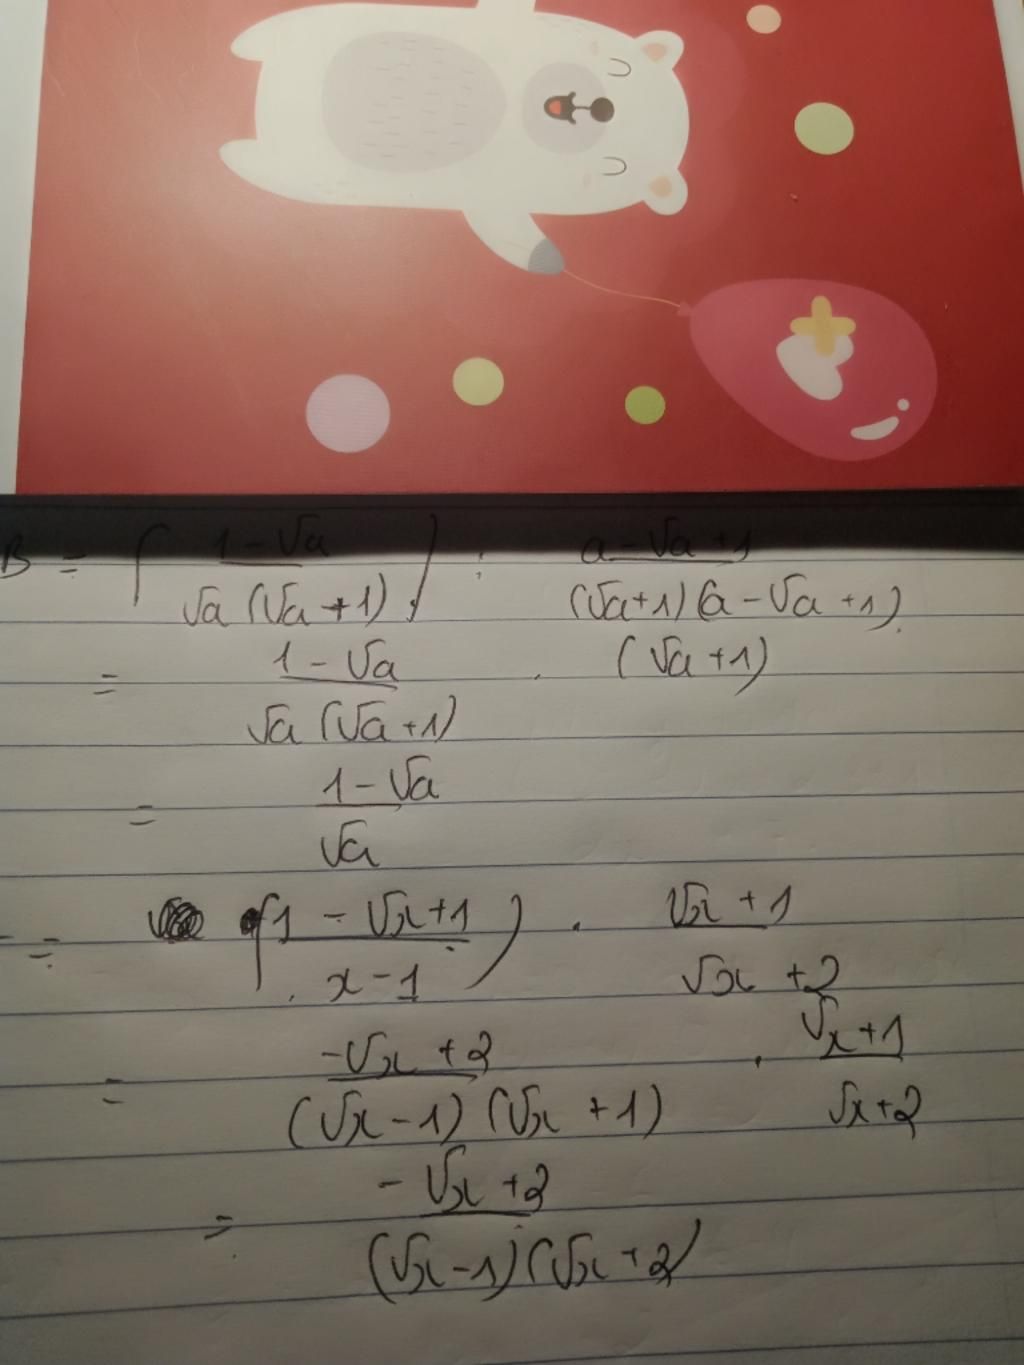 B = ( (1 - √a) / (√a (√a + 1)) ) : (a - √a + 1) / ((√a+1)(a - √a +1))
= (1 - √a) / (√a (√a +1)) . (√a +1)
= (1 - √a) / √a
= ( (1 - √x+1) / (x - 1) ) . (√x + 1) / (√x + 2)
= (-√x + 2) / ((√x - 1) (√x + 1)) . (√x+1) / (√x+2)
= (-√x +2) / ((√x - 1)(√x + 2))